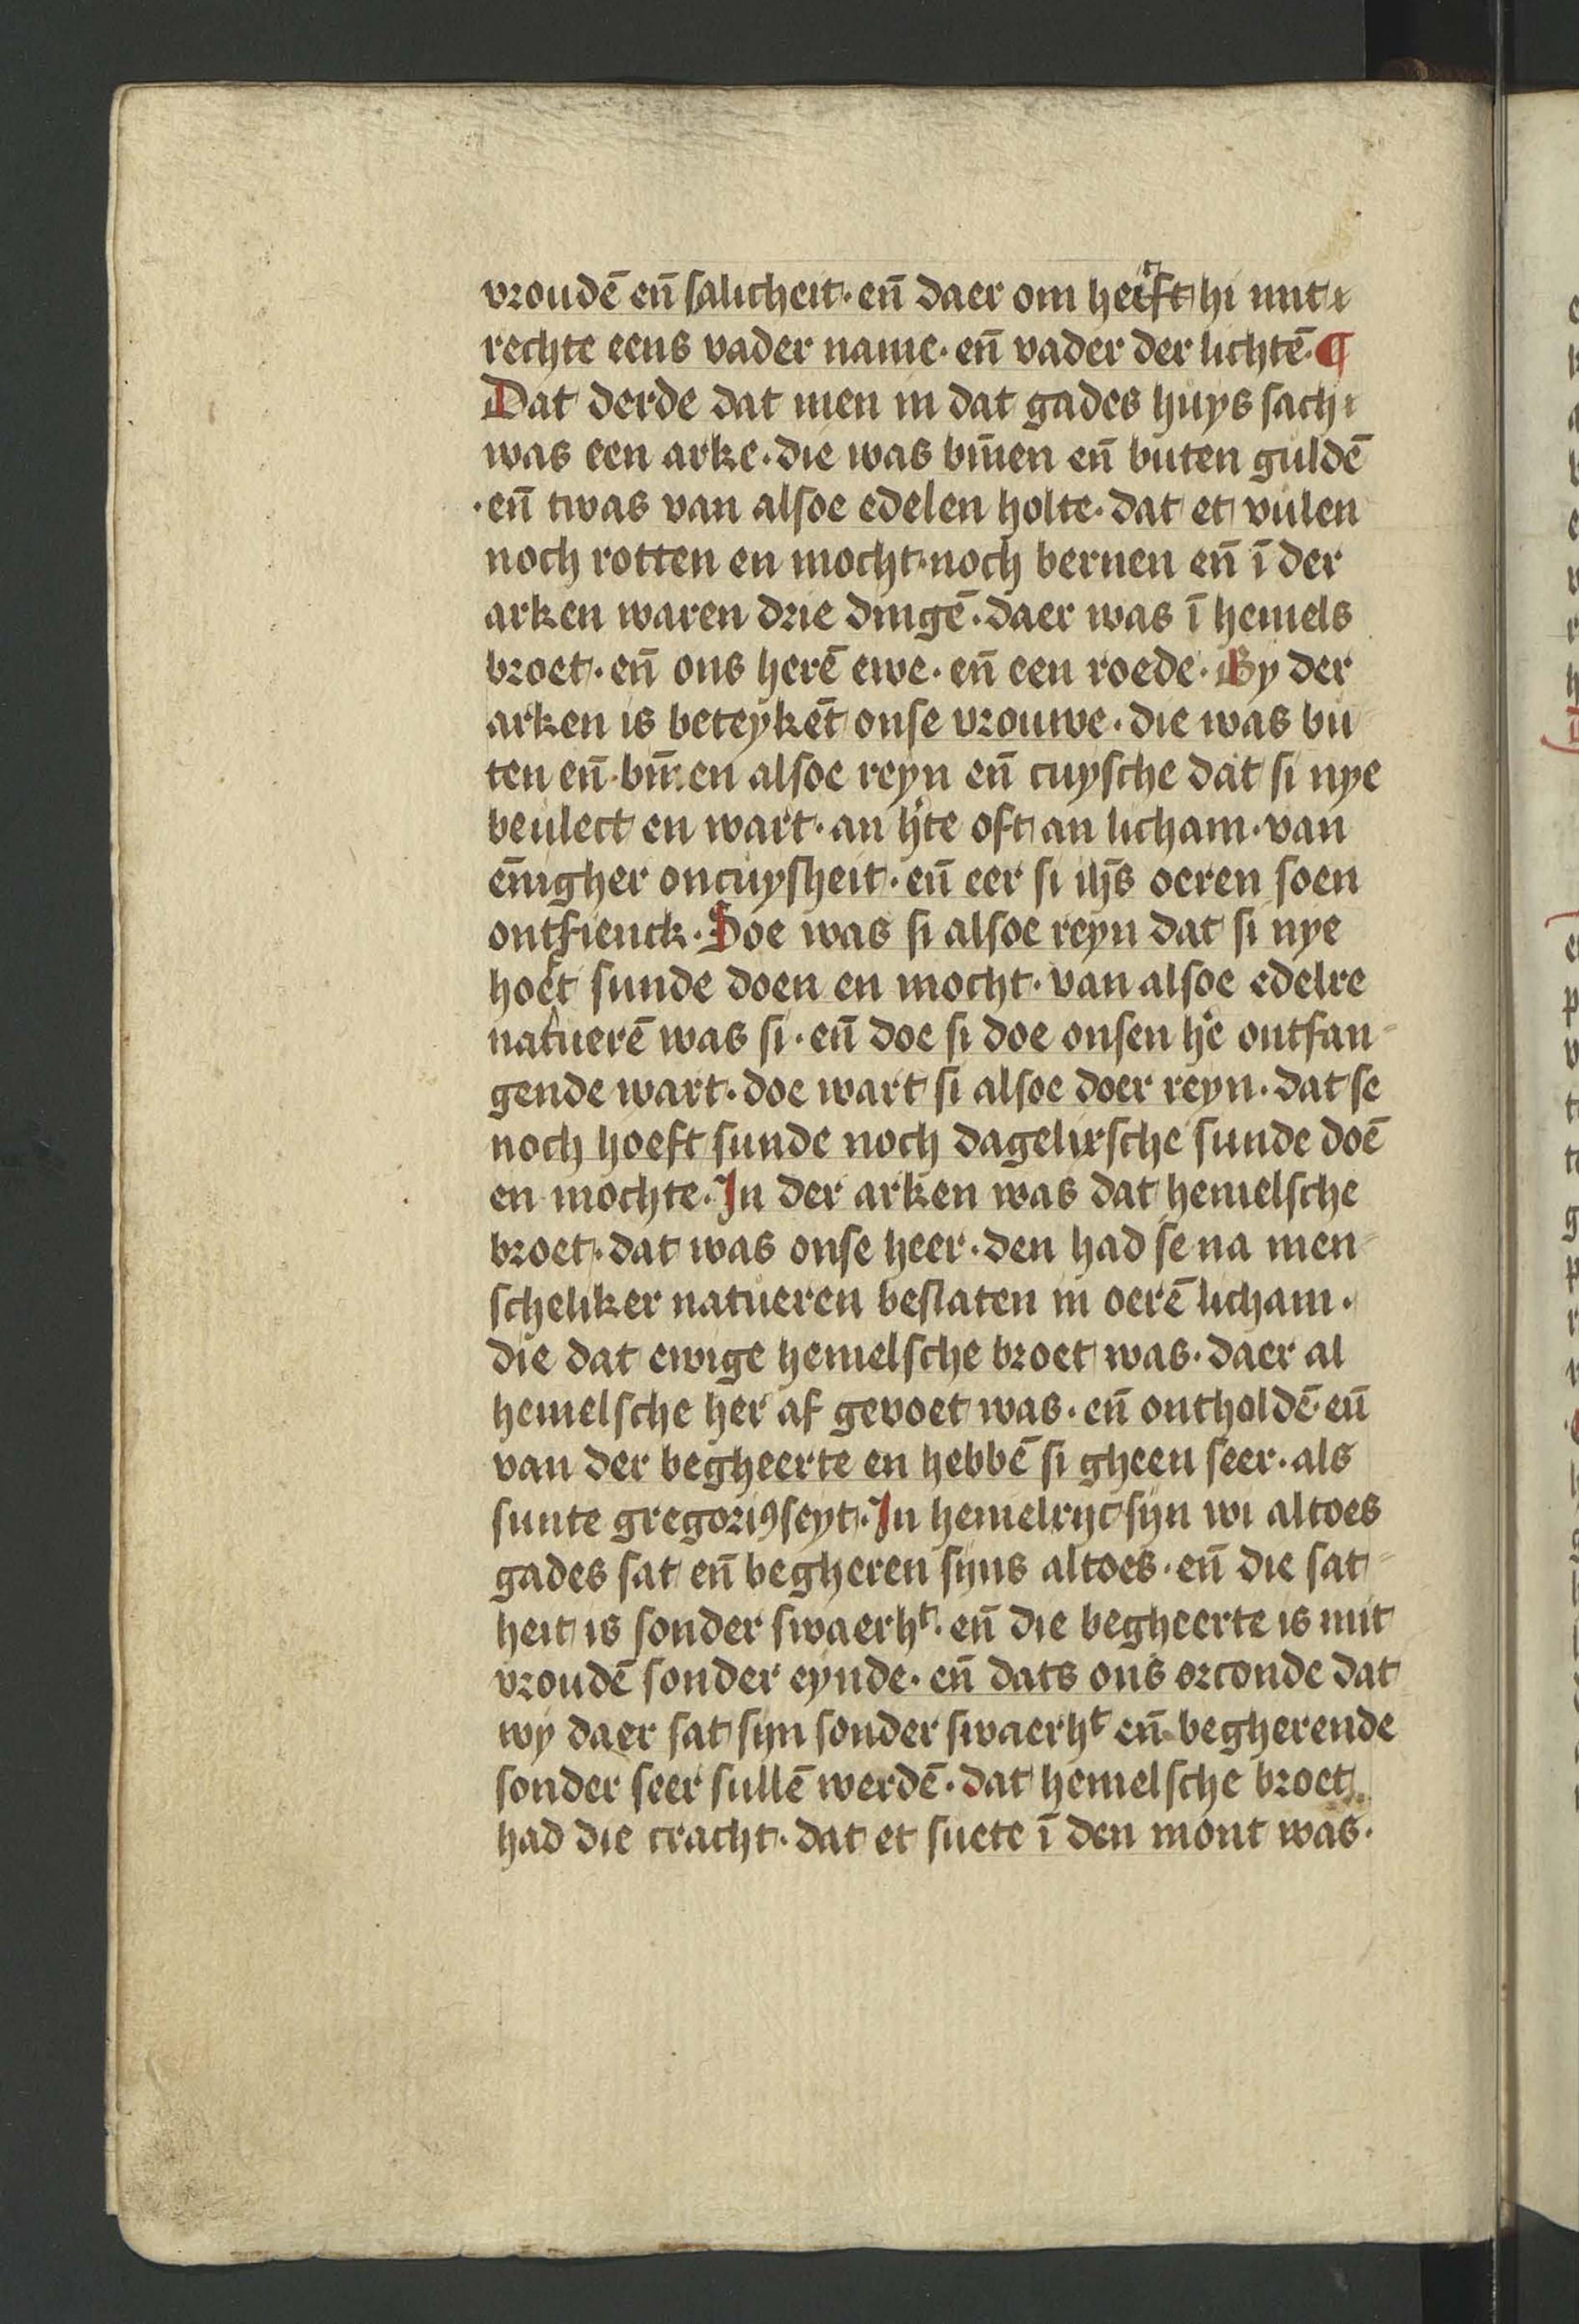 vroudē en̄ salicheit · en̄ daer om heeft hi mit
rechte eens vader name · en̄ vader der lichtē · ¶
Dat derde dat men in dat gades huys sach
was een arke · die was bin̄en en̄ buten guldē
· en̄ twas van alsoe edelen holte · dat et vulen
noch rotten en mocht · noch bernen en̄ ī der
arken waren drie dingē · daer was ī hemels
broet · en̄ ons herē ewe · en̄ een roede · By der
arken is beteykēt onse vrouwe · die was bu
ten en̄ bin̄en alsoe reyn en̄ cuysche dat si nye
beulect en wart · an h'te oft an licham · van
en̄igher oncuysheit · en̄ eer si ih̄s oeren soen
ontfienck · Soe was si alsoe reyn dat si nye
hoeft sunde doen en mocht · van alsoe edelre
natuerē was si · en̄ doe si doe onsen h'e ontfan
gende wart · doe wart si alsoe doer reyn · dat se
noch hoeft sunde noch dagelixsche sunde doē
en mochte · In der arken was dat hemelsche
broet · dat was onse heer · den had se na men
scheliker natueren beslaten in oerē licham ·
die dat ewige hemelsche broet was · daer al
hemelsche her af gevoet was · en̄ ontholdē · en̄
van der begheerte en hebbē si gheen seer · als
sunte gregoriꝰ seyt · In hemelryc syn wi altoes
gades sat en̄ begheren syns altoes · en̄ die sat
heit is sonder swaerhᵗ · en̄ die begheerte is mit
vroudē sonder eynde · en̄ dats ons orconde dat
wy daer sat syn sonder swaerhᵗ en̄ begherende
sonder seer sullē werdē · dat hemelsche broet
had die cracht · dat et suete ī den mont was ·